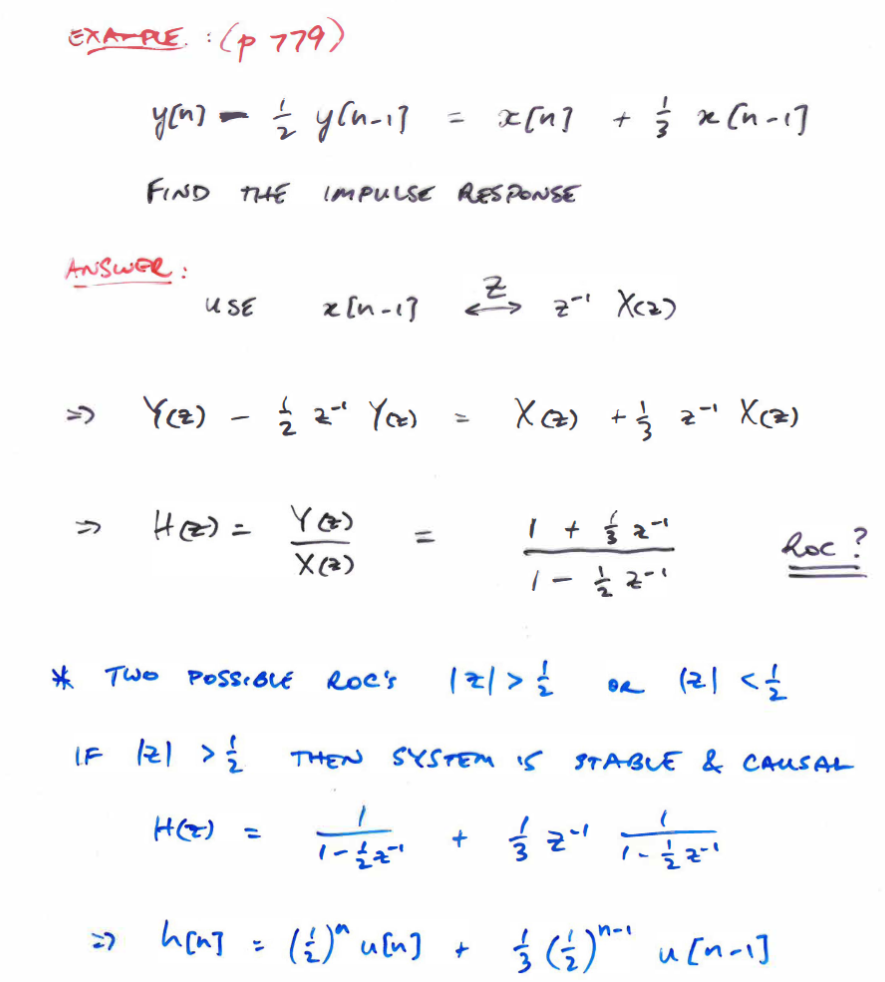 EXAMPLE : (p 779)
y[n] - 1/2 y[n-1] = x[n] + 1/3 x[n-1]
FIND THE IMPULSE RESPONSE
ANSWER :
USE x[n-1] ↔ᶻ z⁻¹ X(z)
⇒ Y(z) - 1/2 z⁻¹ Y(z) = X(z) + 1/3 z⁻¹ X(z)
⇒ H(z) = Y(z)/X(z) = (1 + 1/3 z⁻¹)/(1 - 1/2 z⁻¹) ROC ?
* TWO POSSIBLE ROC'S |z| > 1/2 OR |z| < 1/2
IF |z| > 1/2 THEN SYSTEM IS STABLE & CAUSAL
H(z) = 1/(1 - 1/2 z⁻¹) + 1/3 z⁻¹ 1/(1 - 1/2 z⁻¹)
⇒ h[n] = (1/2)ⁿ u[n] + 1/3 (1/2)ⁿ⁻¹ u[n-1]